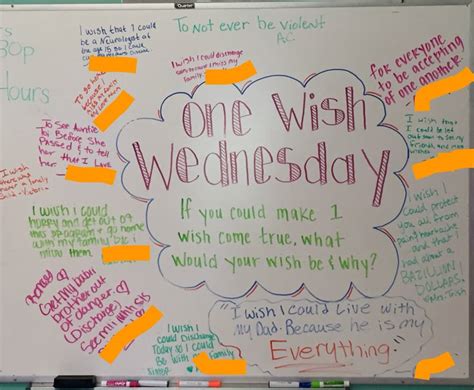 Quartet
I wish that I could
be a Neurologist at
To not ever be violent
AC
30p
Hours
I wish I could discharge
Family
To go home
for everyone
to be accepting
of one another
One Wish
Wednesday
If you could make 1
wish come true, what
would your wish be & why?
To see Auntie
Before She
Passed & to tell
her that I Love
her
I wish
I wish I could
hurry and get out of
this program & go home
with my family bc I
miss them
I wish I
could be let
friends and
I wish I
could protect
you all from
pain, heartache
and that I
had about a
BAZILLION
DOLLARS.
Get my baby
brother out
of danger
(Discharge)
I wish I
could Discharge
Today so I could
Be with my Family
"I wish I could Live with
my Dad. Because he is my
Everything."